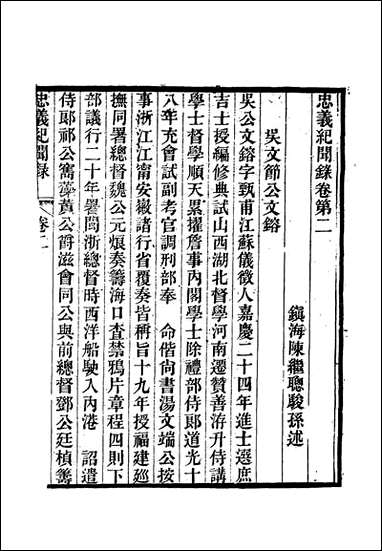 忠義紀聞錄卷第二
鎭海陳繼聰駿孫述
吳文節公文鎔
吳公文鎔字甄甫江蘇儀徵人嘉慶二十四年進士選庶
吉士授編修典試山西湖北督學河南遷贊善洊升侍講
學士督學順天累擢詹事內閣學士除禮部侍郎道光十
八年充會試副考官調刑部奉　命偕尙書湯文端公按
事浙江江甯安徽諸行省覆奏皆稱旨十九年授福建巡
撫同署總督魏公元烺奏籌海口查禁鴉片章程四則下
部議行二十年署閩浙總督時西洋船駛入內港　詔遣
侍郎祁公寯藻黃公爵滋會同公與前總督鄧公廷楨籌
忠義紀聞錄
卷二